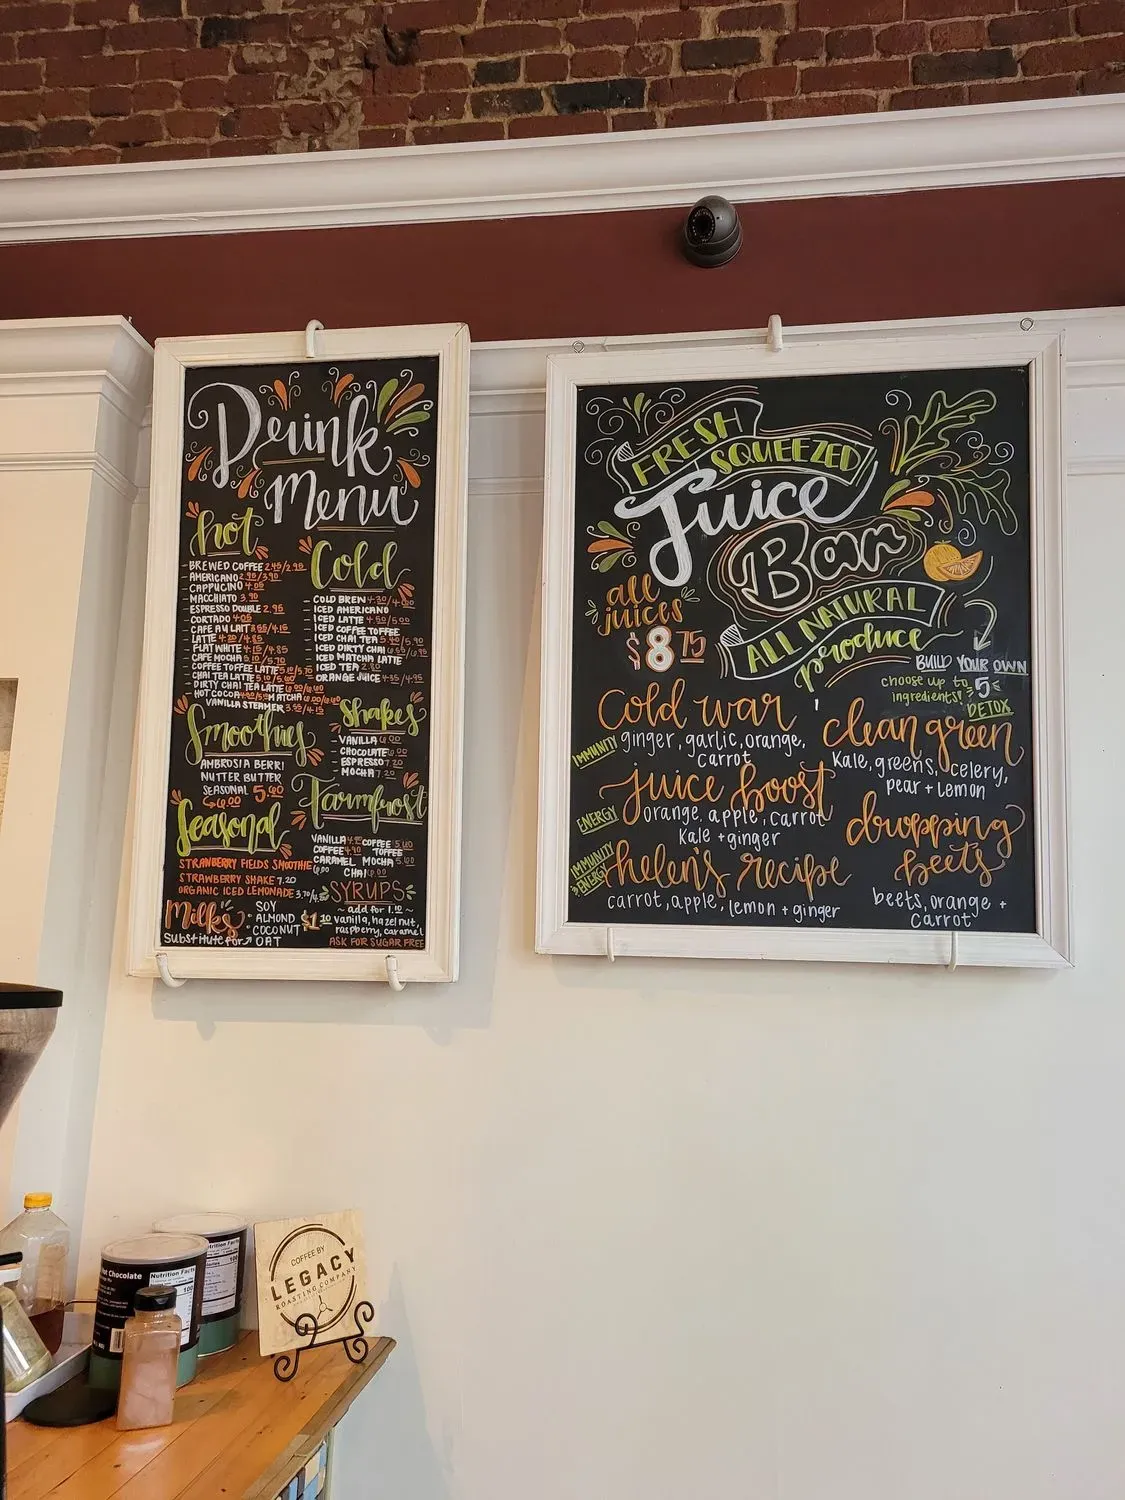 Drink
Menu
hot
- BREWED COFFEE 2.45/2.95
- AMERICANO 2.95/3.90
- CAPPUCINO 4.05
- MACCHIATO 3.90
- ESPRESSO DOUBLE 2.95
- CORTADO 4.05
- CAFE AU LAIT
- LATTE 4.20/4.85
- FLAT WHITE 4.15/4.85
- CAFE MOCHA 5.10/5.70
- COFFEE TOFFEE LATTE 5.10/5.70
- CHAI TEA LATTE 5.10/5.60
- DIRTY CHAI TEA LATTE 6.00/6.60
- HOT COCOA MATCHA
VANILLA STEAMER 3.55/4.15
Cold
- COLD BREW
- ICED AMERICANO
- ICED LATTE 4.50/5.00
- ICED COFFEE TOFFEE
- ICED CHAI TEA 5.40/5.90
- ICED DIRTY CHAI
- ICED MATCHA LATTE
- ICED TEA
- ORANGE JUICE 4.35/4.95
Smoothies
AMBROSIA BERRI
NUTTER BUTTER
SEASONAL
6.00
Shakes
- VANILLA 6.00
- CHOCOLATE 6.00
- ESPRESSO 7.20
- MOCHA 7.20
Seasonal
STRAWBERRY FIELDS SMOOTHIE 6.00
STRAWBERRY SHAKE 7.20
ORGANIC ICED LEMONADE
Farmfrost
VANILLA COFFEE
COFFEE 4.90 TOFFEE
CARAMEL MOCHA
CHAI 6.00
Milks
Substitute for
SOY
• ALMOND
• COCONUT
OAT
$1.10
SYRUPS
~ add for 1.10 ~
vanilla, hazelnut,
raspberry, caramel
ASK FOR SUGAR FREE
FRESH
SQUEEZED
Juice
Bar
ALL NATURAL
produce
all
juices
$8.75
BUILD YOUR OWN
choose up to 5
ingredients!
DETOX
Cold war
IMMUNITY
ginger, garlic, orange,
carrot
juice boost
ENERGY
orange, apple, carrot
Kale + ginger
helen's recipe
IMMUNITY
ENERGY
carrot, apple, lemon + ginger
clean green
Kale, greens, celery,
pear + lemon
dropping
beets
beets, orange +
carrot
Hot Chocolate
Nutrition Facts
100
Nutrition Facts
100
COFFEE BY
LEGACY
ROASTING COMPANY